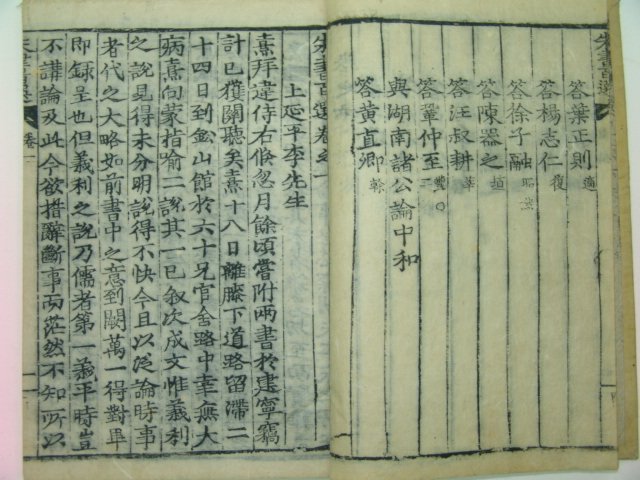 答葉正則 適
答楊志仁 復
答徐子融 昭然
答陳器之 埴
答汪叔耕 莘
答鞏仲至 豐○二
與湖南諸公論中和
答黃直卿 榦
朱書百選卷之一
上延平李先生
熹拜違侍右倏忽月餘頃嘗附兩書於建寧竊
計已獲關聽矣熹十八日離膝下道路留滯二
十四日到鉛山館於六十兄官舍路中幸無大
病熹向蒙指喻二說其一已叙次成文惟義利
之說見得未分明說得不快今且以泛論時事
者代之大略如前書中之意到闕萬一得對畢
即錄呈也但義利之說乃儒者第一義平時豈
不講論及此今欲措辭斷事而茫然不知所以